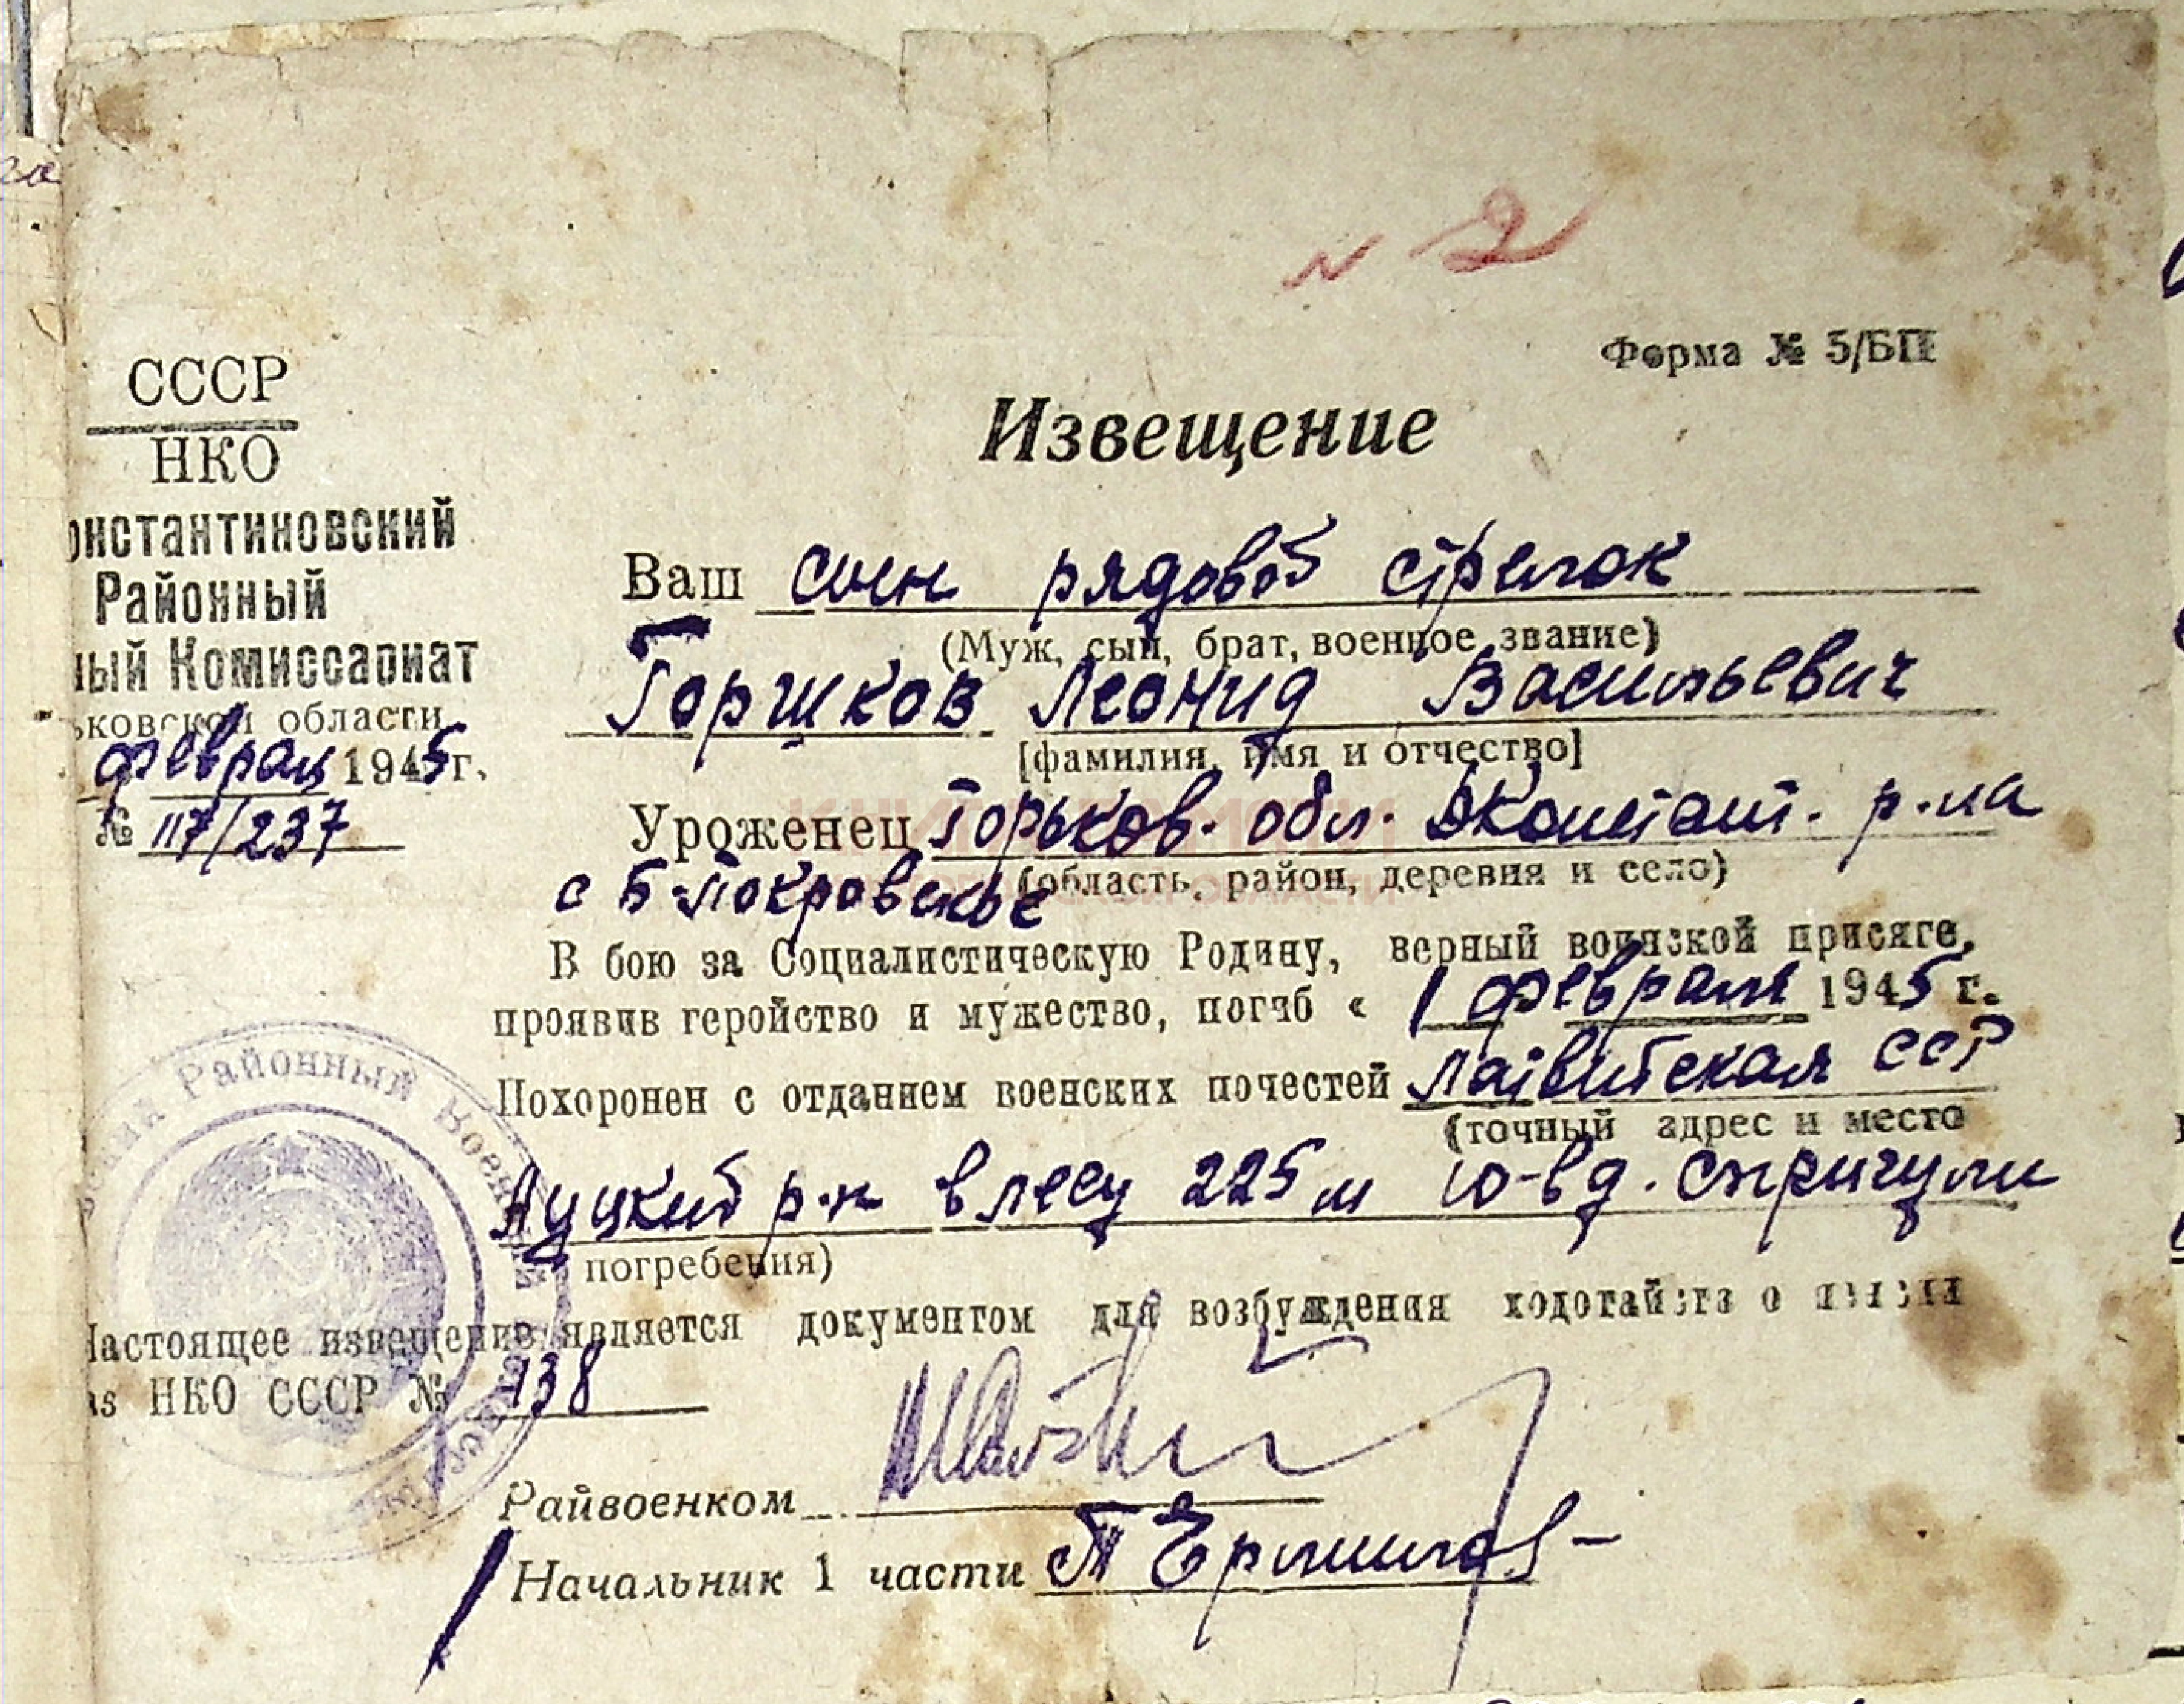 № 2
Форма № 5/БП
СССР
НКО
онстантиновский
Районный
ный Комиссариат
ьковской области
феврал 1945 г.
№ 117/237
Извещение
Ваш сын рядовой стрелок
(Муж, сын, брат, военное звание)
Горшков Леонид Васильевич
[фамилия, имя и отчество]
Уроженец Горьков. обл. ДКонстант. р-на
(область, район, деревня и село)
с Б-Покровское
В бою за Социалистическую Родину, верный воинской присяге,
проявив геройство и мужество, погиб « 1 февраля 1945 г.
Похоронен с отданием военских почестей Латвийская ССР
(точный адрес и место
Ауцкий р-н в лесу 225 м ю-в д. Спригули
погребения)
Настоящее извещение является документом для возбуждения ходотайств о
аз НКО СССР № 138
Райвоенком
Начальник 1 части
Районный Воен